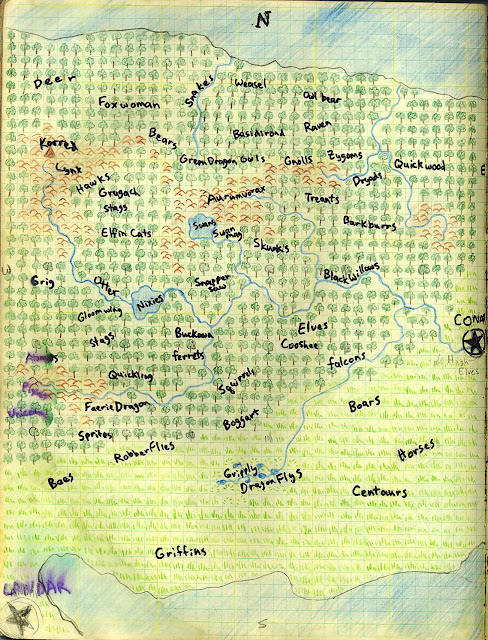 N
Deer
Foxwoman
Snakes
Weasel
Owl bear
Bears
Basidirond
Raven
Korred
Lynx
Green Dragon
Owls
Gnolls
Zygoms
Quickwood
E
Hawks
Grugach
Stags
Aurumvorax
Treants
Dryads
Elfin Cats
Swans
Swan
may
Skunks
Barkburrs
W
Grig
Otter
Nixies
Snapper
Saw
Black Willows
Gloomwing
Stags
Buckawn
Elves
Cooshee
CONA
Elves
ferrets
Quickling
Squirrels
falcons
Faerie Dragon
Boggart
Boars
Sprites
Robber Flies
Horses
Bees
Gripply
Dragon Flys
Centaurs
Griffins
S